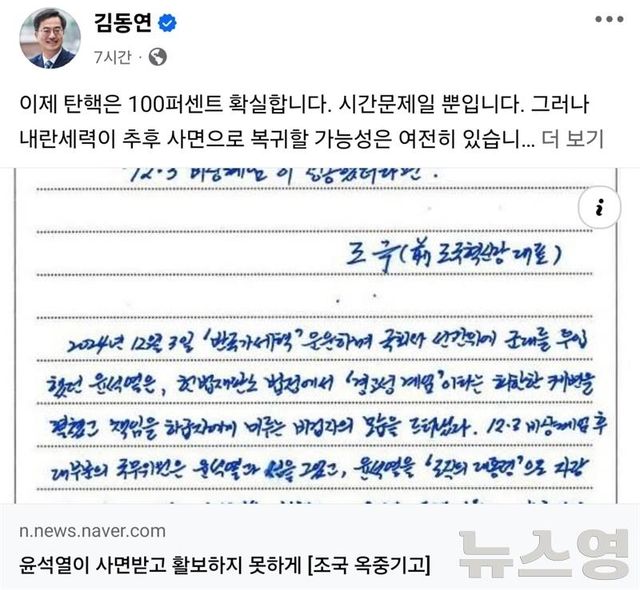 김동연
7시간 ·
이제 탄핵은 100퍼센트 확실합니다. 시간문제일 뿐입니다. 그러나
내란세력이 추후 사면으로 복귀할 가능성은 여전히 있습니... 더 보기
12·3 비상계엄이 성공했더라면.
조국(前 조국혁신당 대표)
2024년 12월 3일 '반국가세력' 운운하며 국회와 선관위에 군대를 투입
했던 윤석열은, 헌법재판소 법정에서 '경고성 계엄'이라는 희한한 궤변을
펼쳤고 책임을 하급자에게 미루는 비겁자의 모습을 드러냈다. 12.3 비상계엄 후
대부분의 국무위원은 윤석열과 선을 그었고, 윤석열을 '조작의 대통령'으로 자랑
n.news.naver.com
윤석열이 사면받고 활보하지 못하게 [조국 옥중기고]
뉴스영